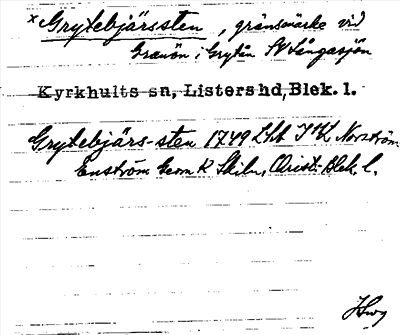 x Grytebjärssten, gränsmärke vid
Granön i Grytån SV Långasjön
Kyrkhults sn, Listers hd, Blek. l.
Grytebjärs-sten 1749 Lht J Norström
Enström Geom K Skibr, Christ. Blek. l.